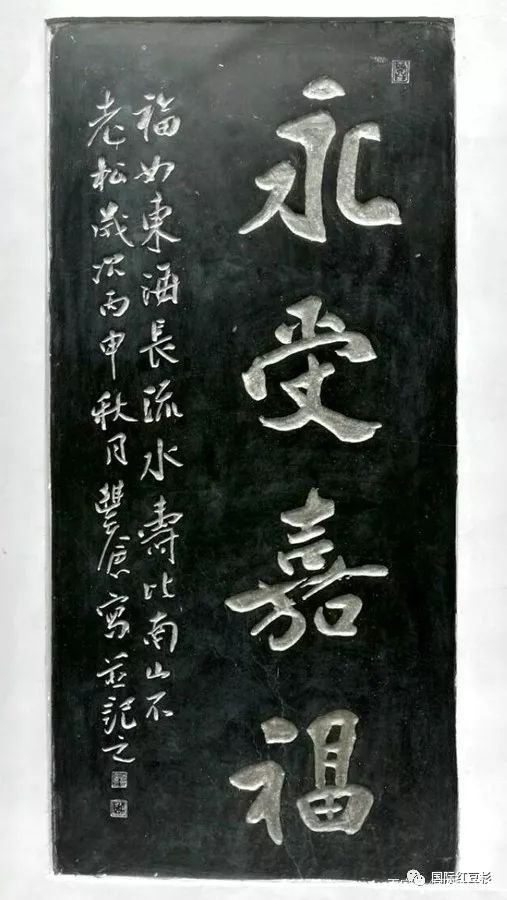 永受嘉福
福如東海長流水壽比南山不
老松歲次丙申秋月豐倉寫並記之
国际红豆杉